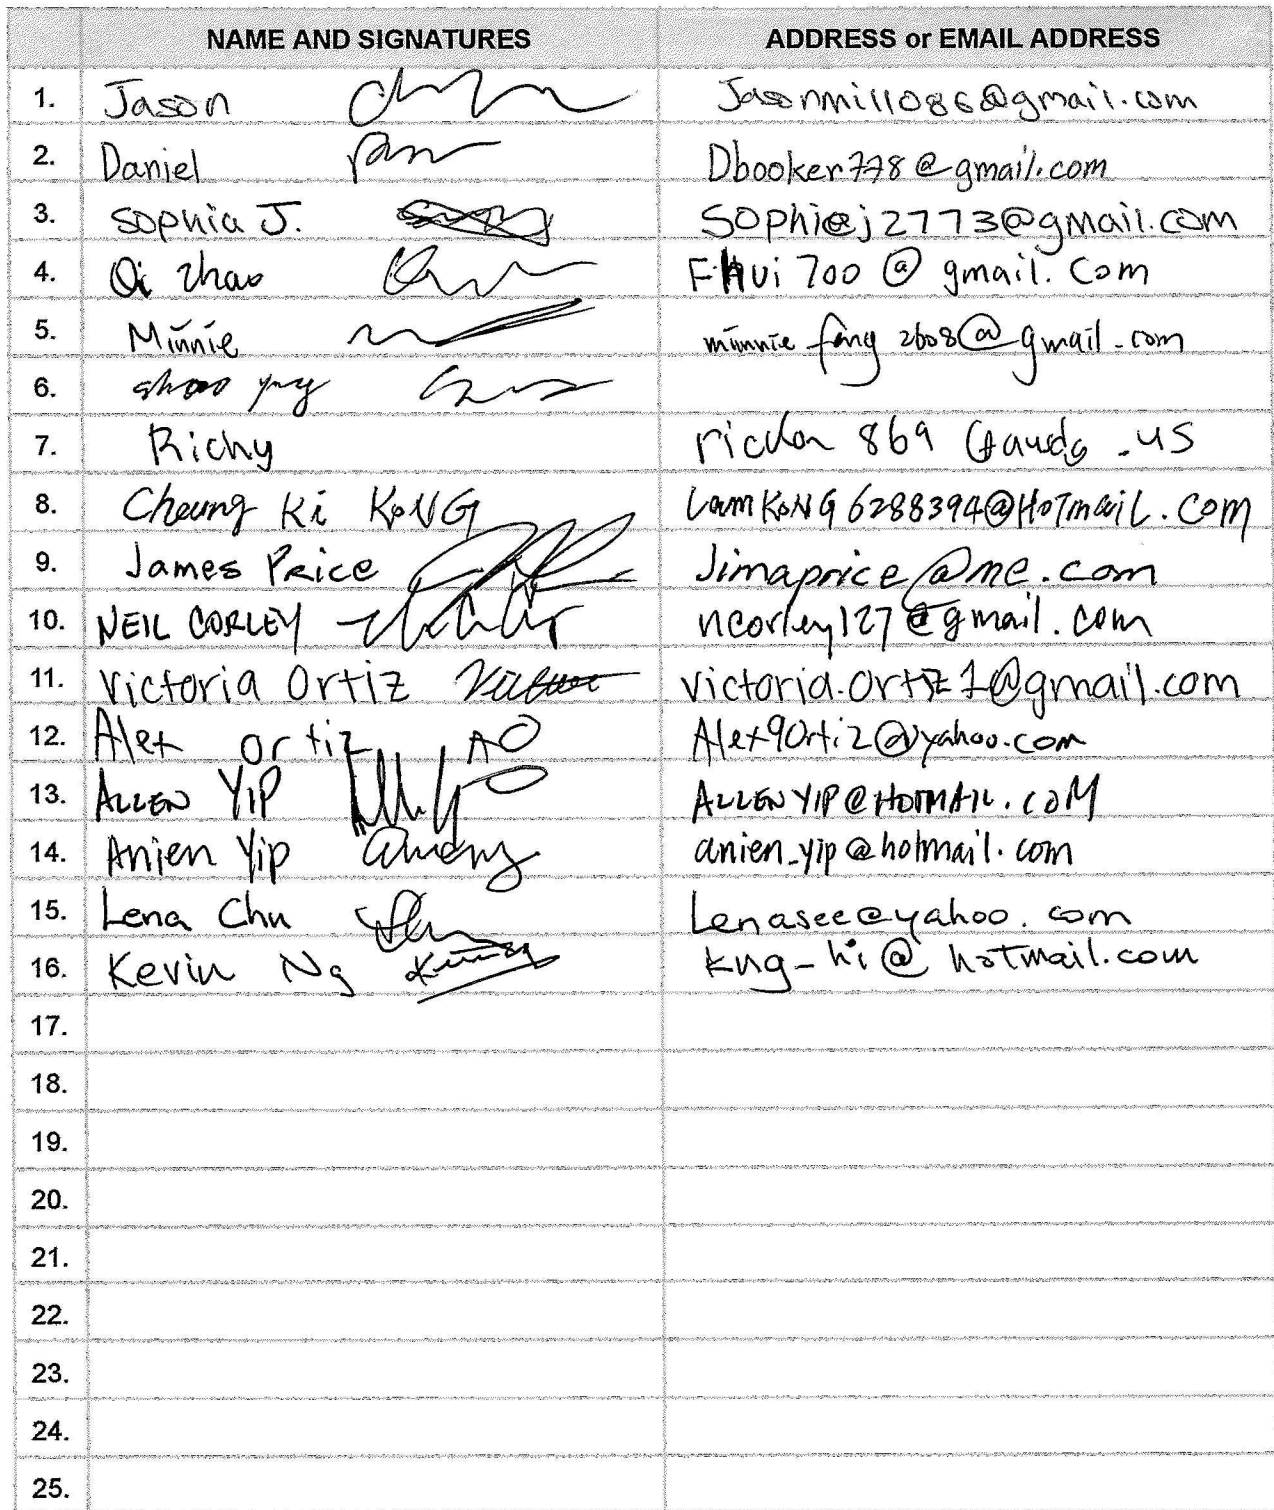 NAME AND SIGNATURES ADDRESS or EMAIL ADDRESS
1. Jason Jasonmill086@gmail.com
2. Daniel Dbooker778@gmail.com
3. Sophia J. Sophiej2773@gmail.com
4. Qi zhao FHui700@gmail.com
5. Minnie minniefang2608@gmail.com
6.
7. Richy 869 .us
8. Cheung Ki KoNG LamKoNG6288394@HoTmaiL.com
9. James Price Jimaprice@me.com
10. NEIL CORLEY ncorley127@gmail.com
11. Victoria Ortiz victoria.ortiz1@gmail.com
12. Alex Ortiz AO Alex9Ortiz@yahoo.com
13. ALLEN YIP ALLENYIP@HOTMAIL.COM
14. Anien Yip anien_yip@hotmail.com
15. Lena Chu Lenasee@yahoo.com
16. Kevin Ng kng_hi@hotmail.com
17.
18.
19.
20.
21.
22.
23.
24.
25.